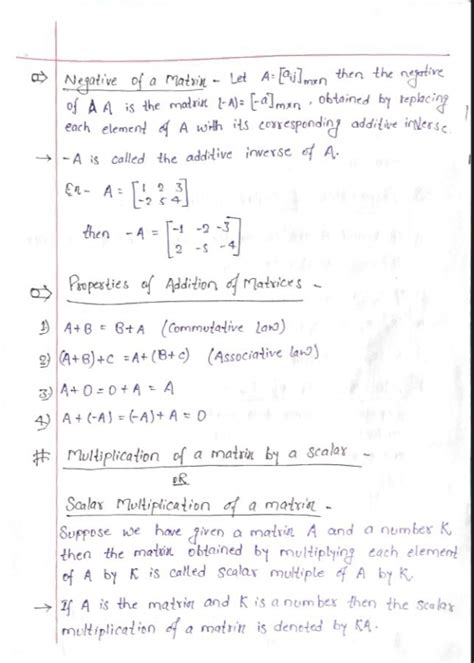 Negative of a Matrix - Let A = [aij]mxn then the negative
of A A is the matrix (-A) = [-a]mxn, obtained by replacing
each element of A with its corresponding additive inverse.
→ -A is called the additive inverse of A.
Ex - A = [1 2 3
-2 5 4]
then -A = [-1 -2 -3
2 -5 -4]
Properties of Addition of Matrices -
1) A+B = B+A (Commutative law)
2) (A+B)+C = A+(B+C) (Associative law)
3) A+O = O+A = A
4) A+(-A) = (-A)+A = O
# Multiplication of a matrix by a scalar -
OR
Scalar Multiplication of a matrix -
Suppose we have given a matrix A and a number K,
then the matrix obtained by multiplying each element
of A by K is called scalar multiple of A by K.
→ If A is the matrix and K is a number then the scalar
multiplication of a matrix is denoted by KA.